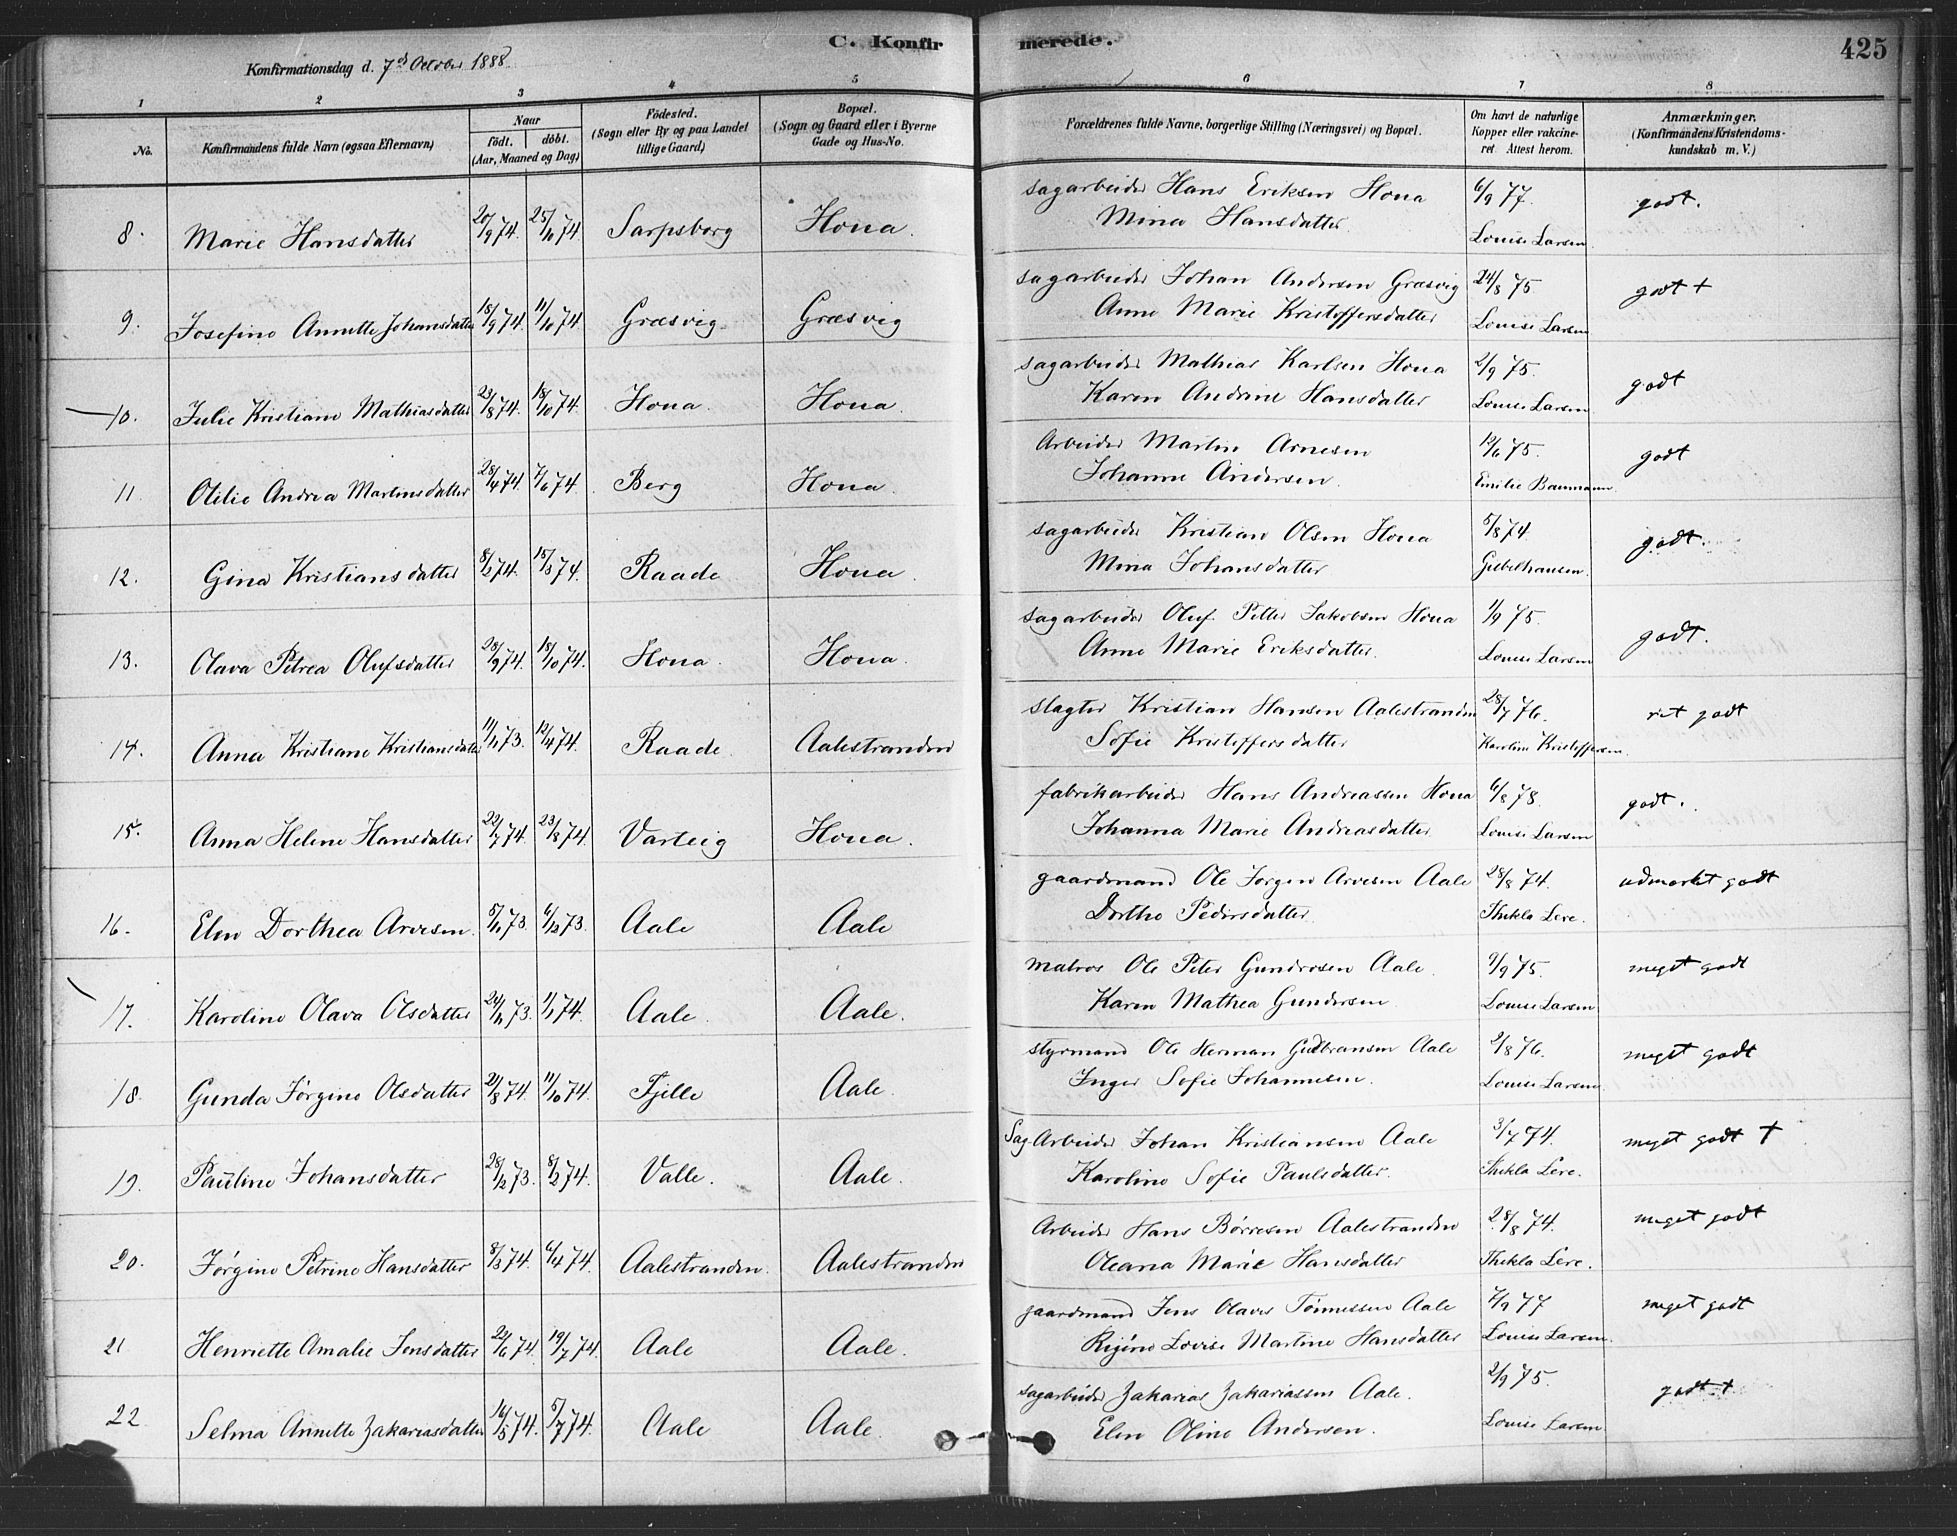 C. Konfirmerede.
425
Konfirmationsdag d. 7d October 1888
1 2 3 4 5 6 7 8
No.
Konfirmandens fulde Navn (ogsaa Efternavn)
Naar
födt. döbt.
(Aar, Maaned og Dag)
Födested.
(Sogn eller By og paa Landet
tillige Gaard)
Bopæl.
(Sogn og Gaard eller i Byerne
Gade og Hus-No.
Forældrenes fulde Navne, borgerlige Stilling (Næringsvei) og Bopæl.
Om havt de naturlige
Kopper eller vakcine-
ret. Attest herom.
Anmærkninger.
(Konfirmandens Kristendoms-
kundskab m. V.)
8. Marie Hansdatter 20/9 74. 25/10 74. Sarpsborg Hona. sagarbeider Hans Eriksen Hona 6/9 77. godt.
Mina Hansdatter. Louise Larsen
9. Josefine Annette Johansdatter 18/9 74. 11/10 74. Græsvig Græsvig sagarbeider Johan Andersen Græsvig 24/8 75. godt +
Anne Marie Kristoffersdatter Louise Larsen
10. Julie Kristiane Mathiasdatter 23/8 74. 18/10 74. Hona. Hona. sagarbeider Mathias Karlsen Hona 2/9 75. godt
Karen Andrine Hansdatter Louise Larsen
11 Otilie Andrea Martinsdatter 28/4 74. 7/6 74. Berg Hona. Arbeider Martin Arnesen 12/6 75. godt
Johanne Andersen. Emilie Baumann.
12. Gina Kristiansdatter 8/2 74. 15/3 74. Raade Hona. sagarbeider Kristian Olsen Hona 5/8 74. godt.
Mina Johansdatter. Giebelhausen.
13. Olava Petrea Olufsdatter 28/9 74. 18/10 74. Hona. Hona. sagarbeider Oluf Petter Jakobsen Hona 1/9 75. godt.
Anne Marie Eriksdatter. Louise Larsen
14. Anna Kristiane Kristiansdatter 11/11 73. 12/4 74. Raade Aalestranden slagter Kristian Hansen Aalestranden 28/7 76. ret godt
Sofie Kristoffersdatter Karoline Kristoffersen.
15. Anna Helene Hansdatter 22/7 74. 23/8 74. Varteig Hona. fabrikarbeider Hans Andreassen Hona 6/8 78. godt.
Johanna Marie Andreasdatter Louise Larsen
16. Elen Dorthea Arvesen. 5/11 73. 6/12 73. Aale Aale gaardmand Ole Jørgen Arvesen Aale 28/8 74. udmerket godt
Dorthe Pedersdatter. Thekla Lere.
17. Karoline Olava Olsdatter 24/11 73. 1/1 74. Aale. Aale. matros Ole Peter Gundersen Aale. 9/9 75. meget godt
Karen Mathea Gundersen Louise Larsen
18. Gunda Jørgine Olsdatter 21/8 74. 11/10 74. Fjelle Aale. styrmand Ole Herman Gudbransen Aale 2/8 76. meget godt
Inger Sofie Johannesen. Louise Larsen
19. Pauline Johansdatter 28/12 73. 8/2 74. Valle. Aale. Sag Arbeider Johan Kristiansen Aale 3/7 74. meget godt +
Karoline Sofie Paulsdatter. Thekla Lere.
20. Jørgine Petrine Hansdatter 8/3 74. 6/4 74. Aalestranden. Aalestranden Arbeider Hans Börresen Aalestranden 28/8 74. meget godt
Oleana Marie Hansdatter Thekla Lere.
21 Henriette Amalie Jensdatter 24/6 74. 19/7 74. Aale Aale. gaardmand Jens Olaves Tønnessen Aale 7/9 77 meget godt
Lovise Martine Hansdatter Louise Larsen.
22 Selma Annette Zakariasdatter 16/5 74. 5/7 74. Aale Aale. sagarbeider Zakarias Zakariassen Aale. 2/9 75. godt +
Elen Oline Andersen. Louise Larsen